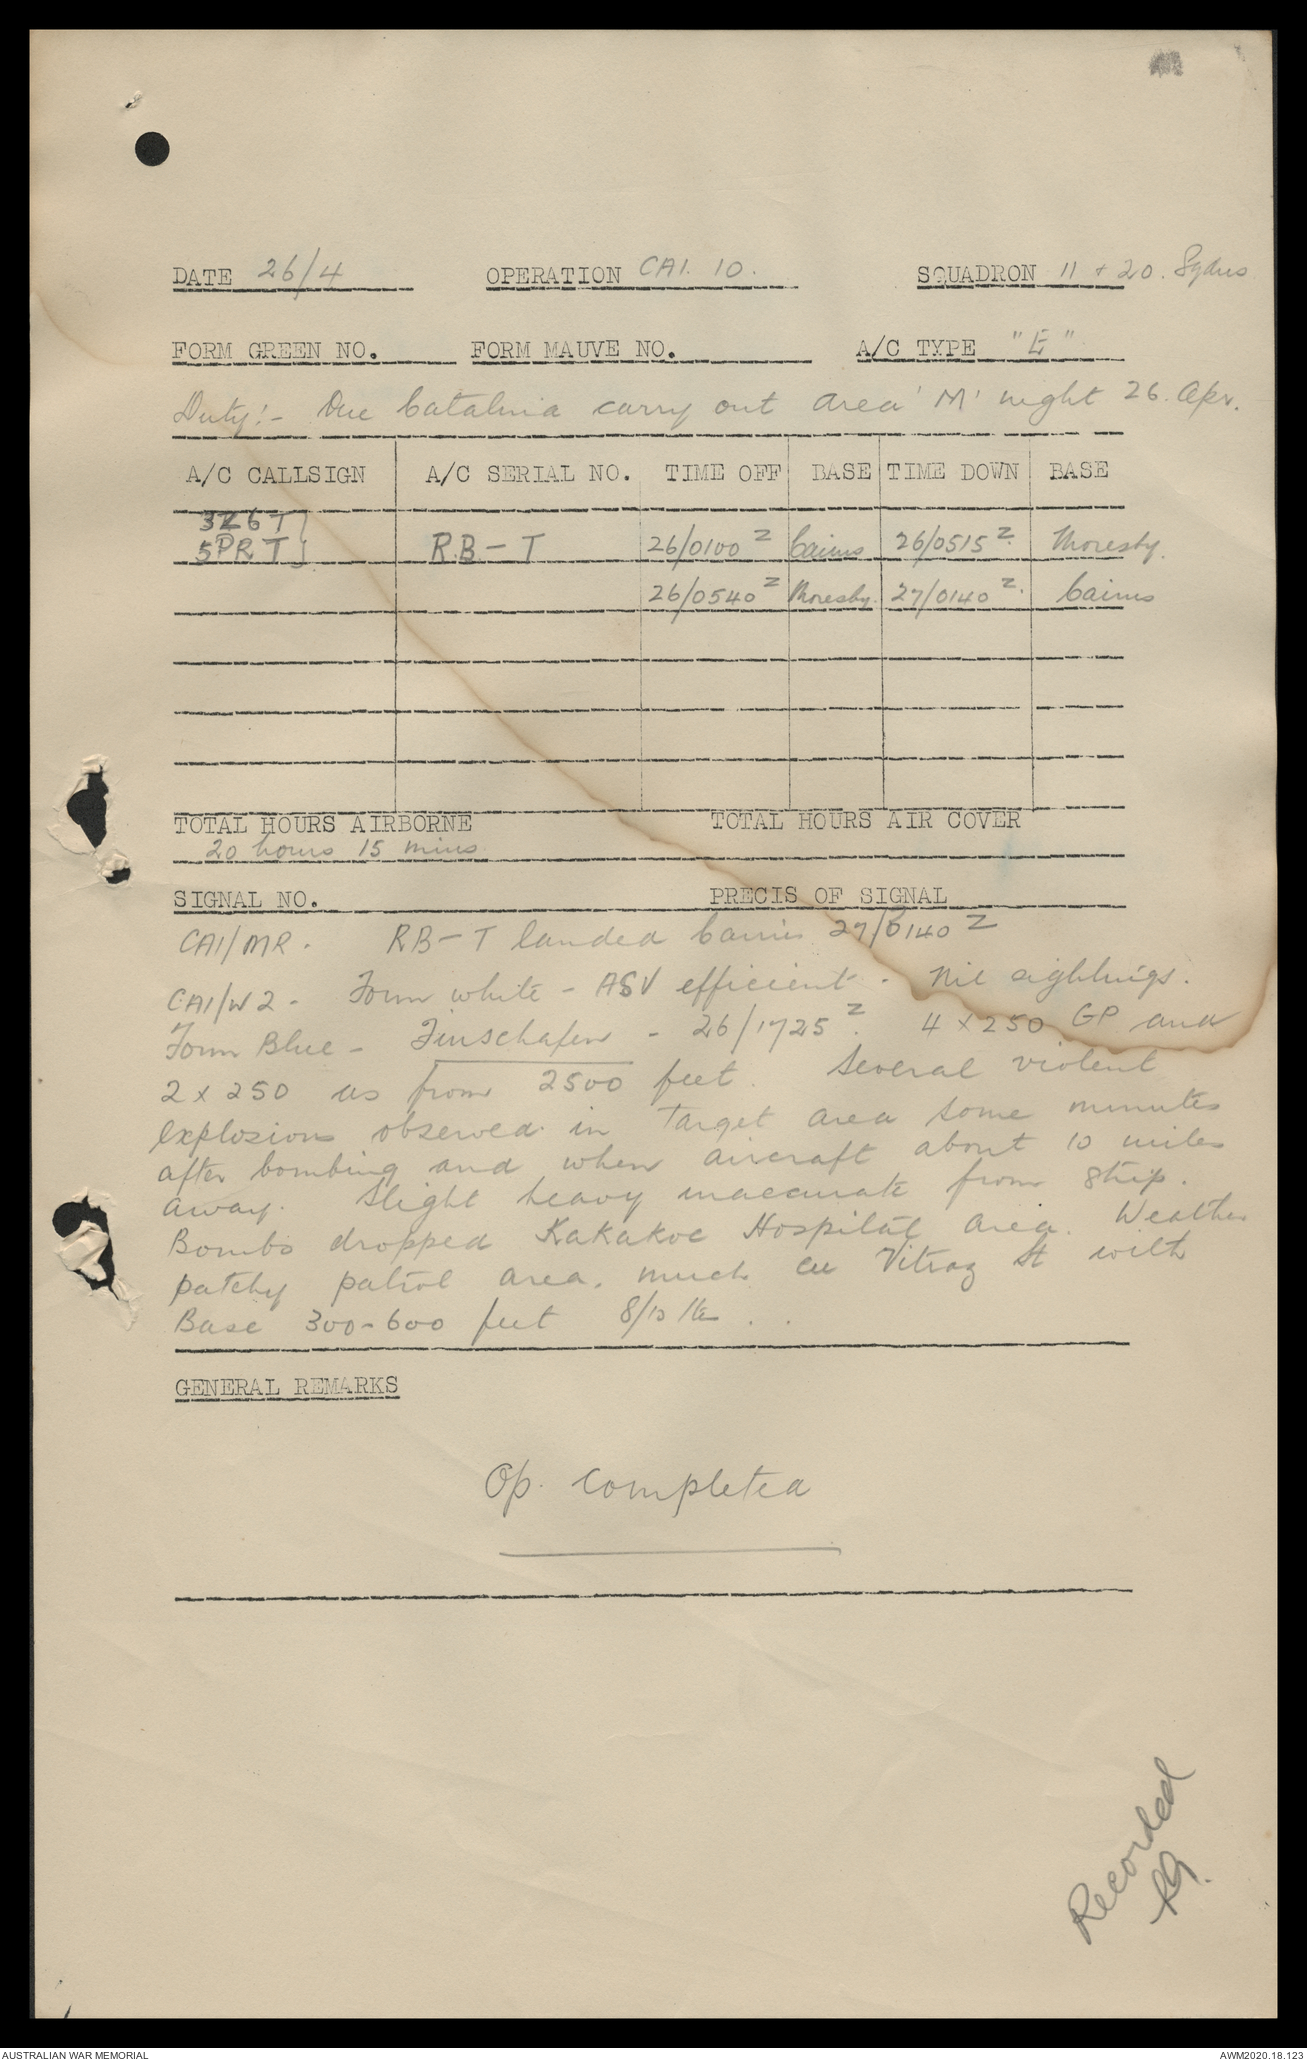 DATE 26/4 OPERATION CA1. 10. SQUADRON 11 + 20. Sqdns
FORM GREEN NO. FORM MAUVE NO. A/C TYPE "E"
Duty:- One Catalina carry out area 'M' night 26. Apr.
A/C CALLSIGN A/C SERIAL NO. TIME OFF BASE TIME DOWN BASE
3Z6T }
5PRT } RB-T 26/0100 Z Cairns 26/0515 Z. Moresby.
26/0540 Z Moresby. 27/0140 Z. Cairns
TOTAL HOURS AIRBORNE TOTAL HOURS AIR COVER
20 hours 15 mins
SIGNAL NO. PRECIS OF SIGNAL
CA1/MR. RB-T landed Cairns 27/0140 Z
CA1/W2 - Form white - ASV efficient - Nil sightings.
Form Blue - Finschafen - 26/1725 Z. 4 x 250 GP and
2 x 250 as from 2500 feet. Several violent
explosions observed in Target area some minutes
after bombing and when aircraft about 10 miles
away. Slight heavy inaccurate from strip.
Bombs dropped Kakakoe Hospital area. Weather
patchy patrol area. much cu Vitiaz St with
Base 300-600 feet 8/10
GENERAL REMARKS
Op. Completed
Recorded
AUSTRALIAN WAR MEMORIAL AWM2020.18.123